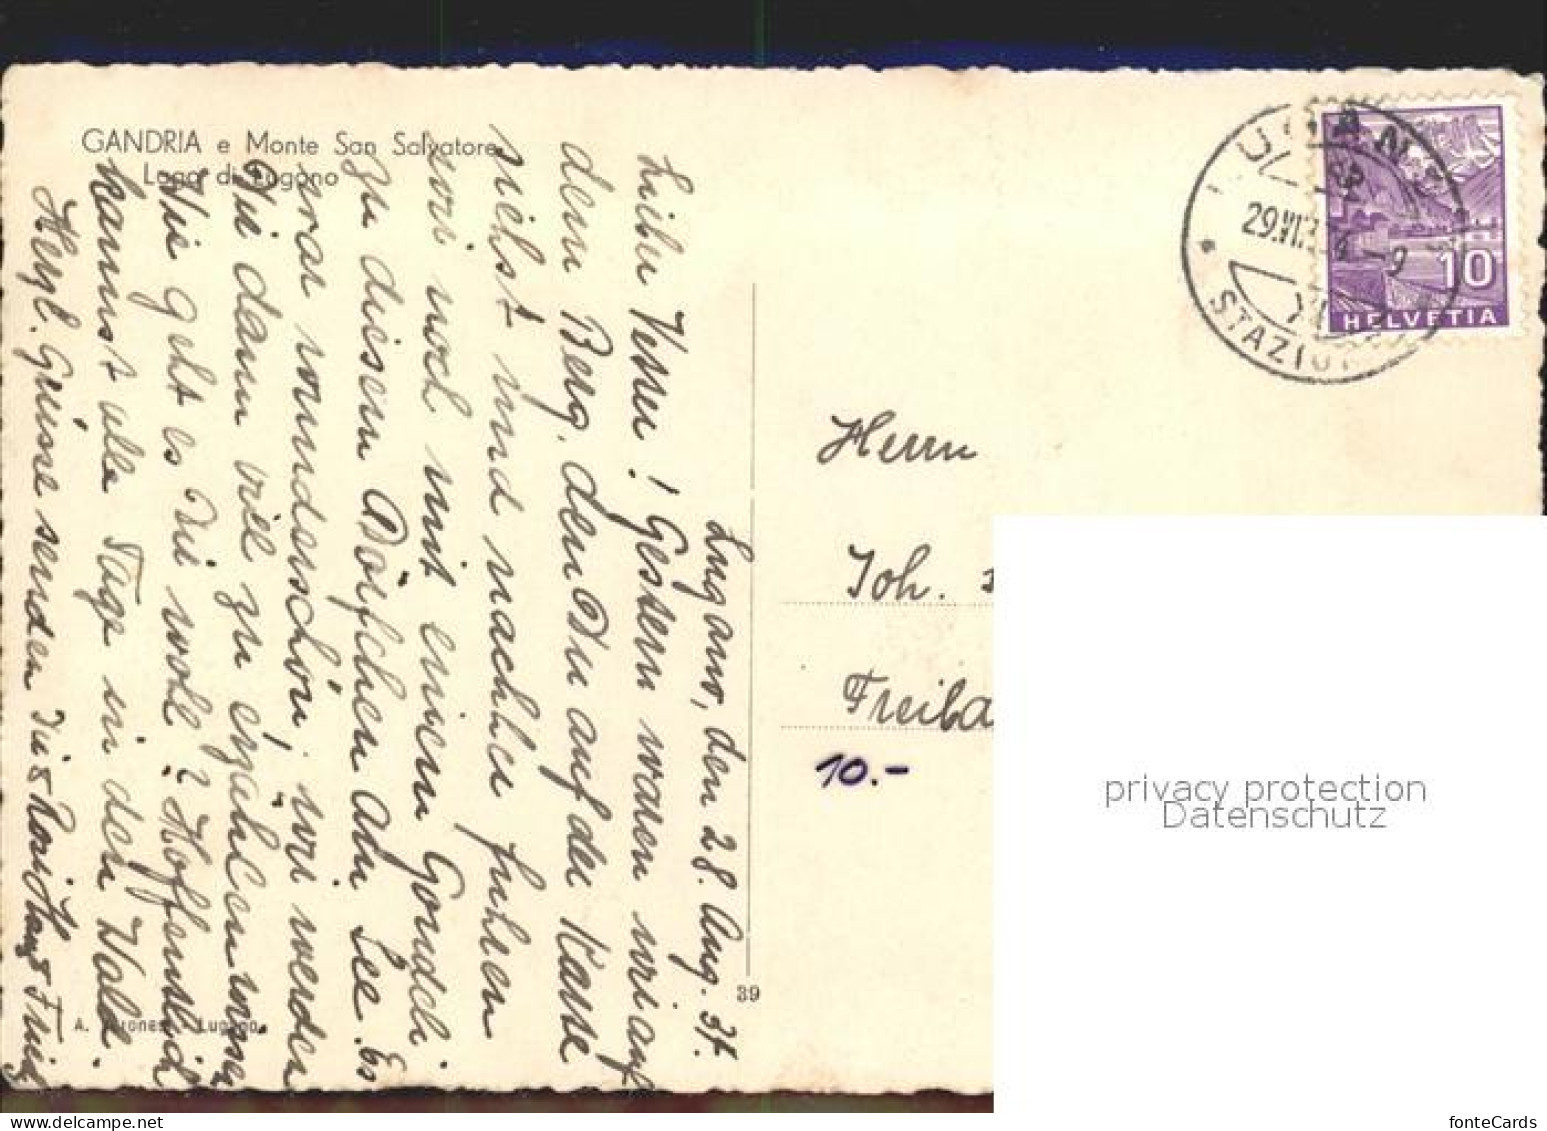 GANDRIA e Monte San Salvatore
Lago di Lugano
Lugano, den 28. Aug. 37.
Lieber Vetter! Gestern waren wir auf
dem Berg, den Du auf der Karte
siehst und nachher fuhren
wir noch mit einem Gondeli
zu diesem Dörfchen am See. Es
war wunderschön, wir werden
Dir dann viel zu erzählen wissen
Wie geht es Dir wohl? Hoffentlich
kannst alle Tage in den Wald.
Herzl. Grüsse senden Dir Rosi Hans Frieg
A. - Lugano
39
STAZIO
29.VIII.37 - 9
10
HELVETIA
Herrn
Joh.
Freiba
10.-
privacy protection
Datenschutz
fonteCards